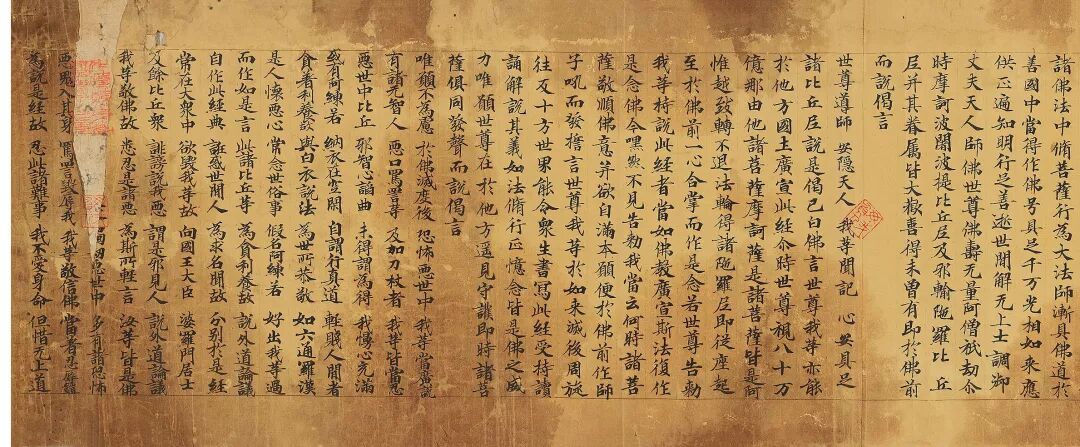 諸佛法中脩菩薩行為大法師漸具佛道於
善國中當得作佛号具足千万光相如來應
供正遍知明行足善逝世間解无上士調御
丈夫天人師佛世尊佛壽无量阿僧祇劫尒
時摩訶波闍波提比丘尼及耶輸陁羅比丘
尼并其眷属皆大歡喜得未曽有即於佛前
而說偈言
世尊導師 安隱天人 我等聞記 心安具足
諸比丘尼說是偈已白佛言世尊我等亦能
於他方國土廣宣此經尒時世尊視八十万
億那由他諸菩薩摩訶薩是諸菩薩皆是阿
惟越致轉不退法輪得諸陁羅尼即從座起
至於佛前一心合掌而作是念若世尊告勑
我等持說此經者當如佛教廣宣斯法復作
是念佛今嘿然不見告勑我當云何時諸菩
薩敬順佛意并欲自滿本願便於佛前作師
子吼而發誓言世尊我等於如來滅後周旋
往及十方世界能令衆生書寫此經受持讀
誦解說其義如法脩行正憶念皆是佛之威
力唯願世尊在於他方遥見守護即時諸菩
薩俱同發聲而說偈言
唯願不為慮 於佛滅度後 恐怖惡世中 我等當廣說
有諸无智人 惡口罵詈等 及加刀杖者 我等皆當忍
惡世中比丘 邪智心諂曲 未得謂為得 我慢心充滿
或有阿練若 納衣在空閑 自謂行真道 輕賤人間者
貪著利養故 與白衣說法 為世所恭敬 如六通羅漢
是人懷惡心 常念世俗事 假名阿練若 好出我等過
而作如是言 此諸比丘等 為貪利養故 說外道論議
自作此經典 誑惑世間人 為求名聞故 分別於是經
常在大衆中 欲毀我等故 向國王大臣 婆羅門居士
及餘比丘衆 誹謗說我惡 謂是邪見人 說外道論議
我等敬佛故 悉忍是諸惡 為斯所輕言 汝等皆是佛
惡世中 多有諸恐怖
惡鬼入其身 罵詈毀辱我 我等敬信佛 當著忍辱鎧
為說是經故 忍此諸難事 我不愛身命 但惜无上道